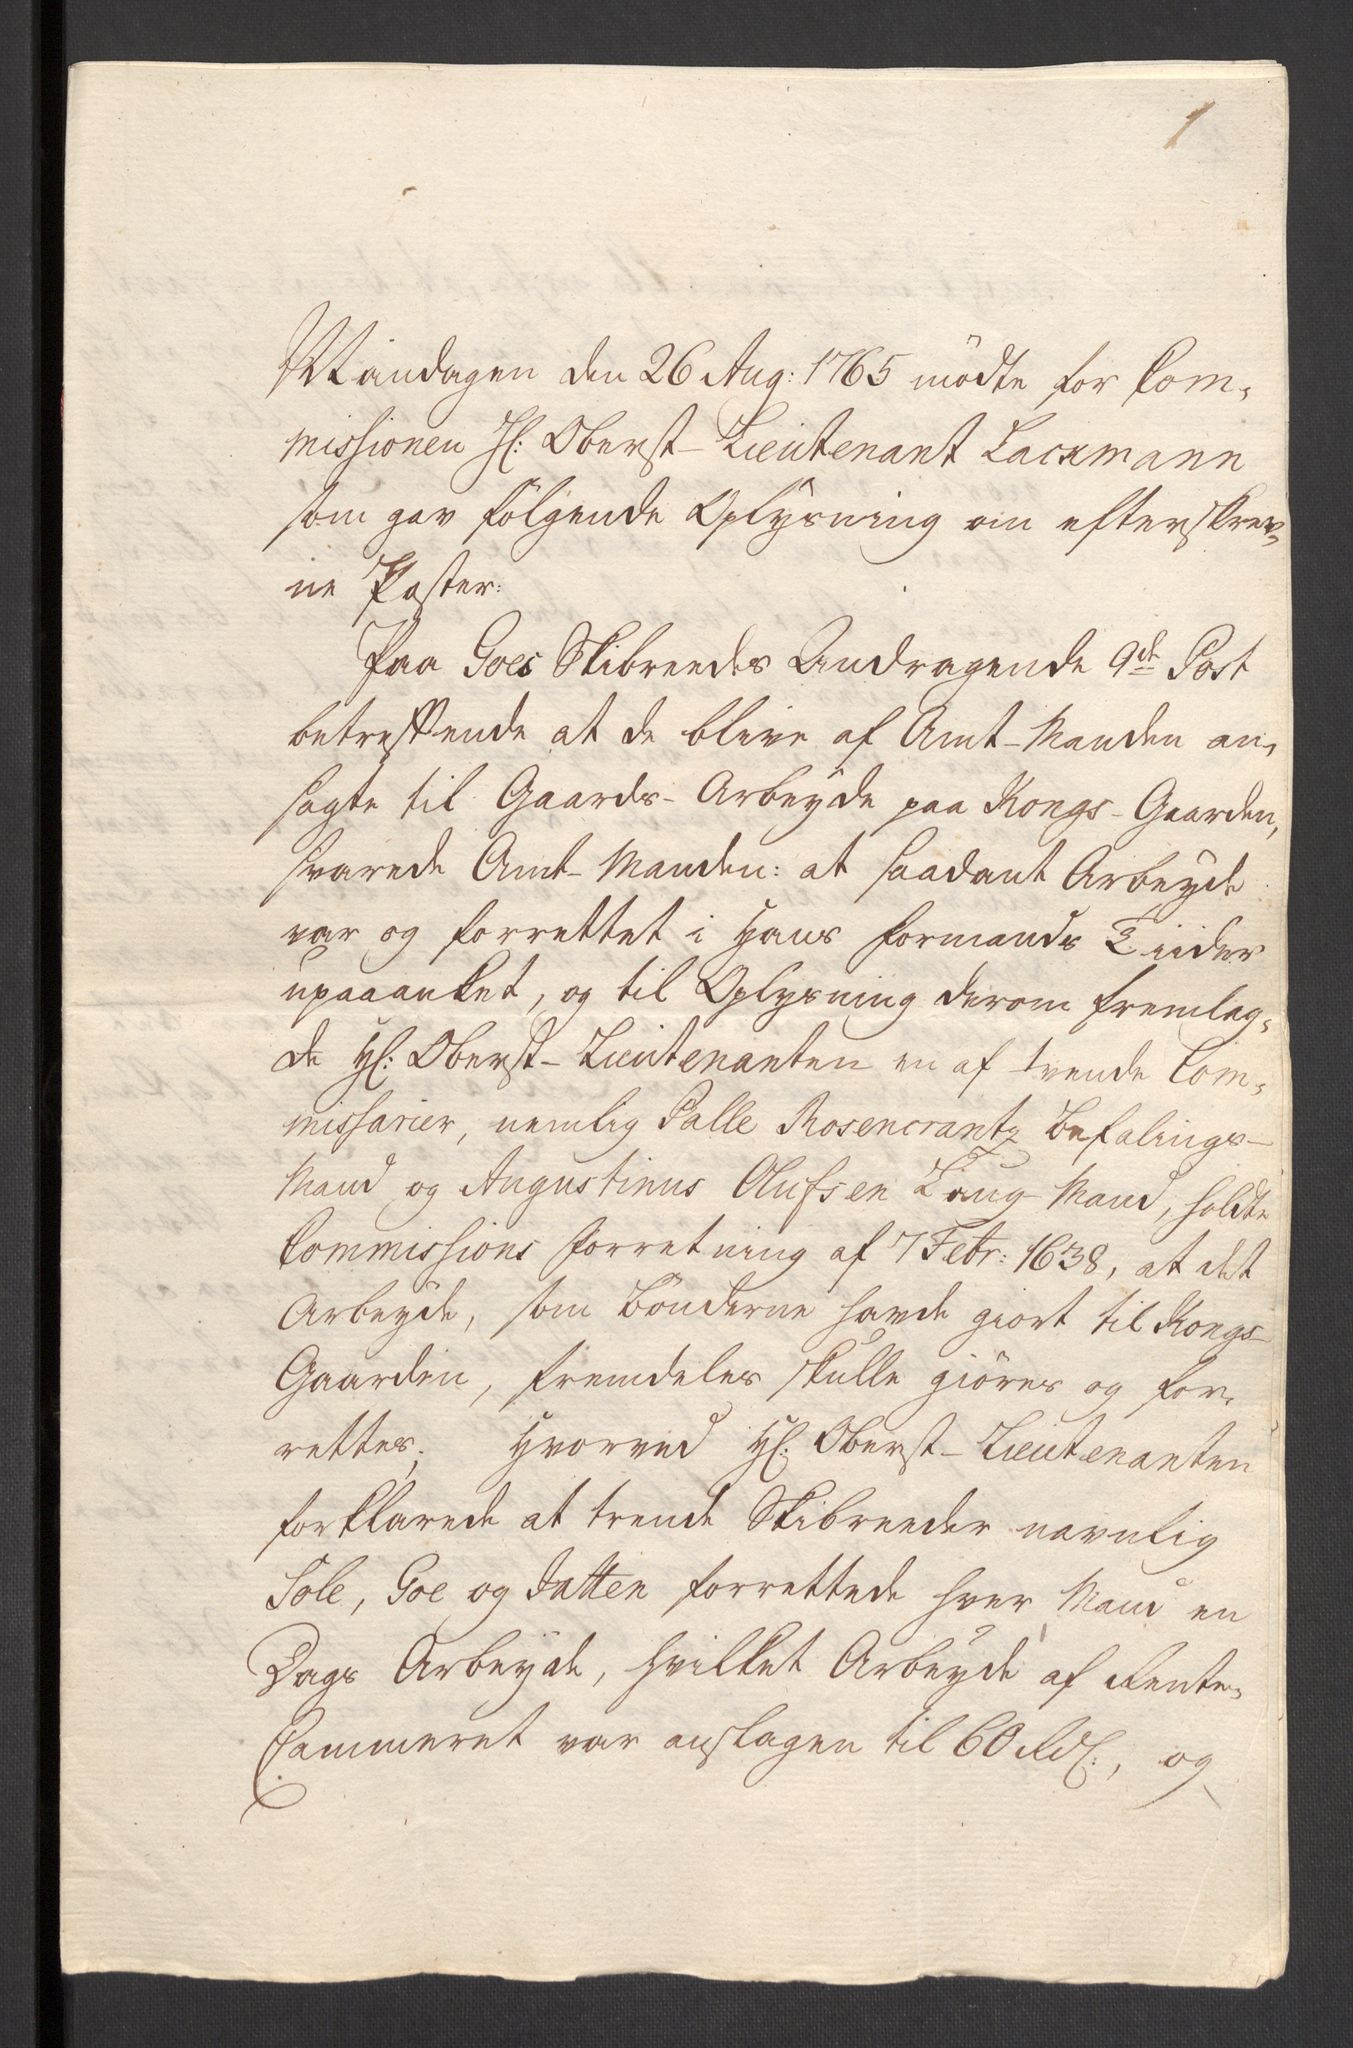 1
Mandagen den 26 Aug: 1765 mödte for Com-
missionen H: Oberst-Lieutenant Lackmann
som gav fölgende Oplysning om efterskrev-
ne Poster:
Paa Goes Skibreedes Andragende 9de Post
betreffende at de blive af Amt-Manden an-
sagte til Gaards-Arbeyde paa Kongs-Gaarden,
svarede Amt-Manden: at saadant Arbeyde
var og forrettet i Hans Formands Tiider
upaaanket, og til Oplysning derom fremlag-
de H: Oberst-Lieutenanten en af tvende Com-
missarier, nemlig Palle Rosencrantz Befalings-
Mand og Augustinus Olufsen Laug-Mand, holdte
Commissions Forretning af 7 Febr: 1638, at det
Arbeyde, som Bönderne havde giort til Kongs-
Gaarden, fremdeles skulle giöres og for-
rettes; Hvorved H: Oberst-Lieutenanten
forklarede at trende Skibreeder navnlig
Sole, Goe og Jatten forrettede hver Mand en
Dags Arbeyde, hvilket Arbeyde af Rente-
Cammeret var anslagen til 60 Rd:, og